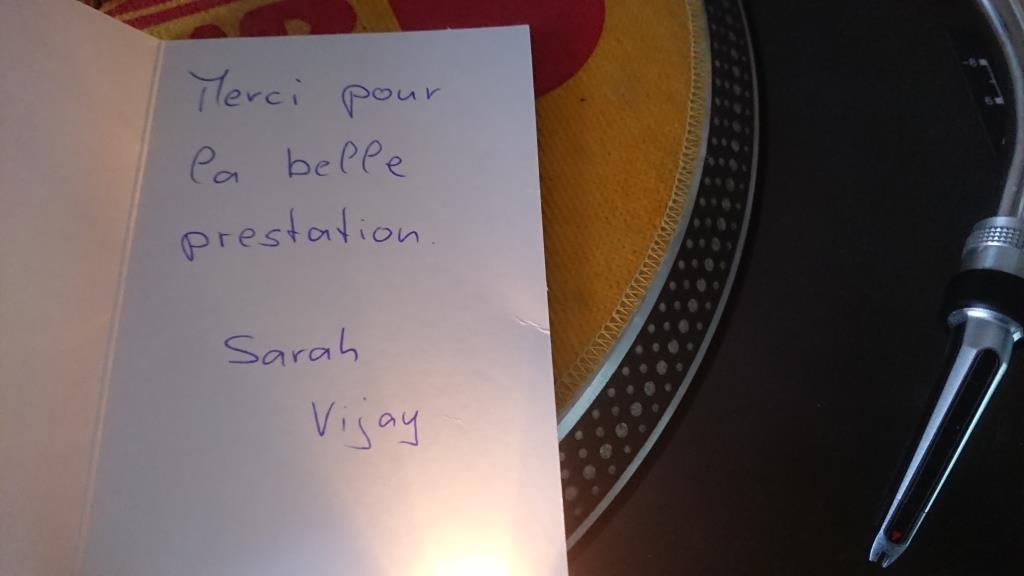 Merci pour
la belle
prestation.
Sarah
Vijay
-6
6